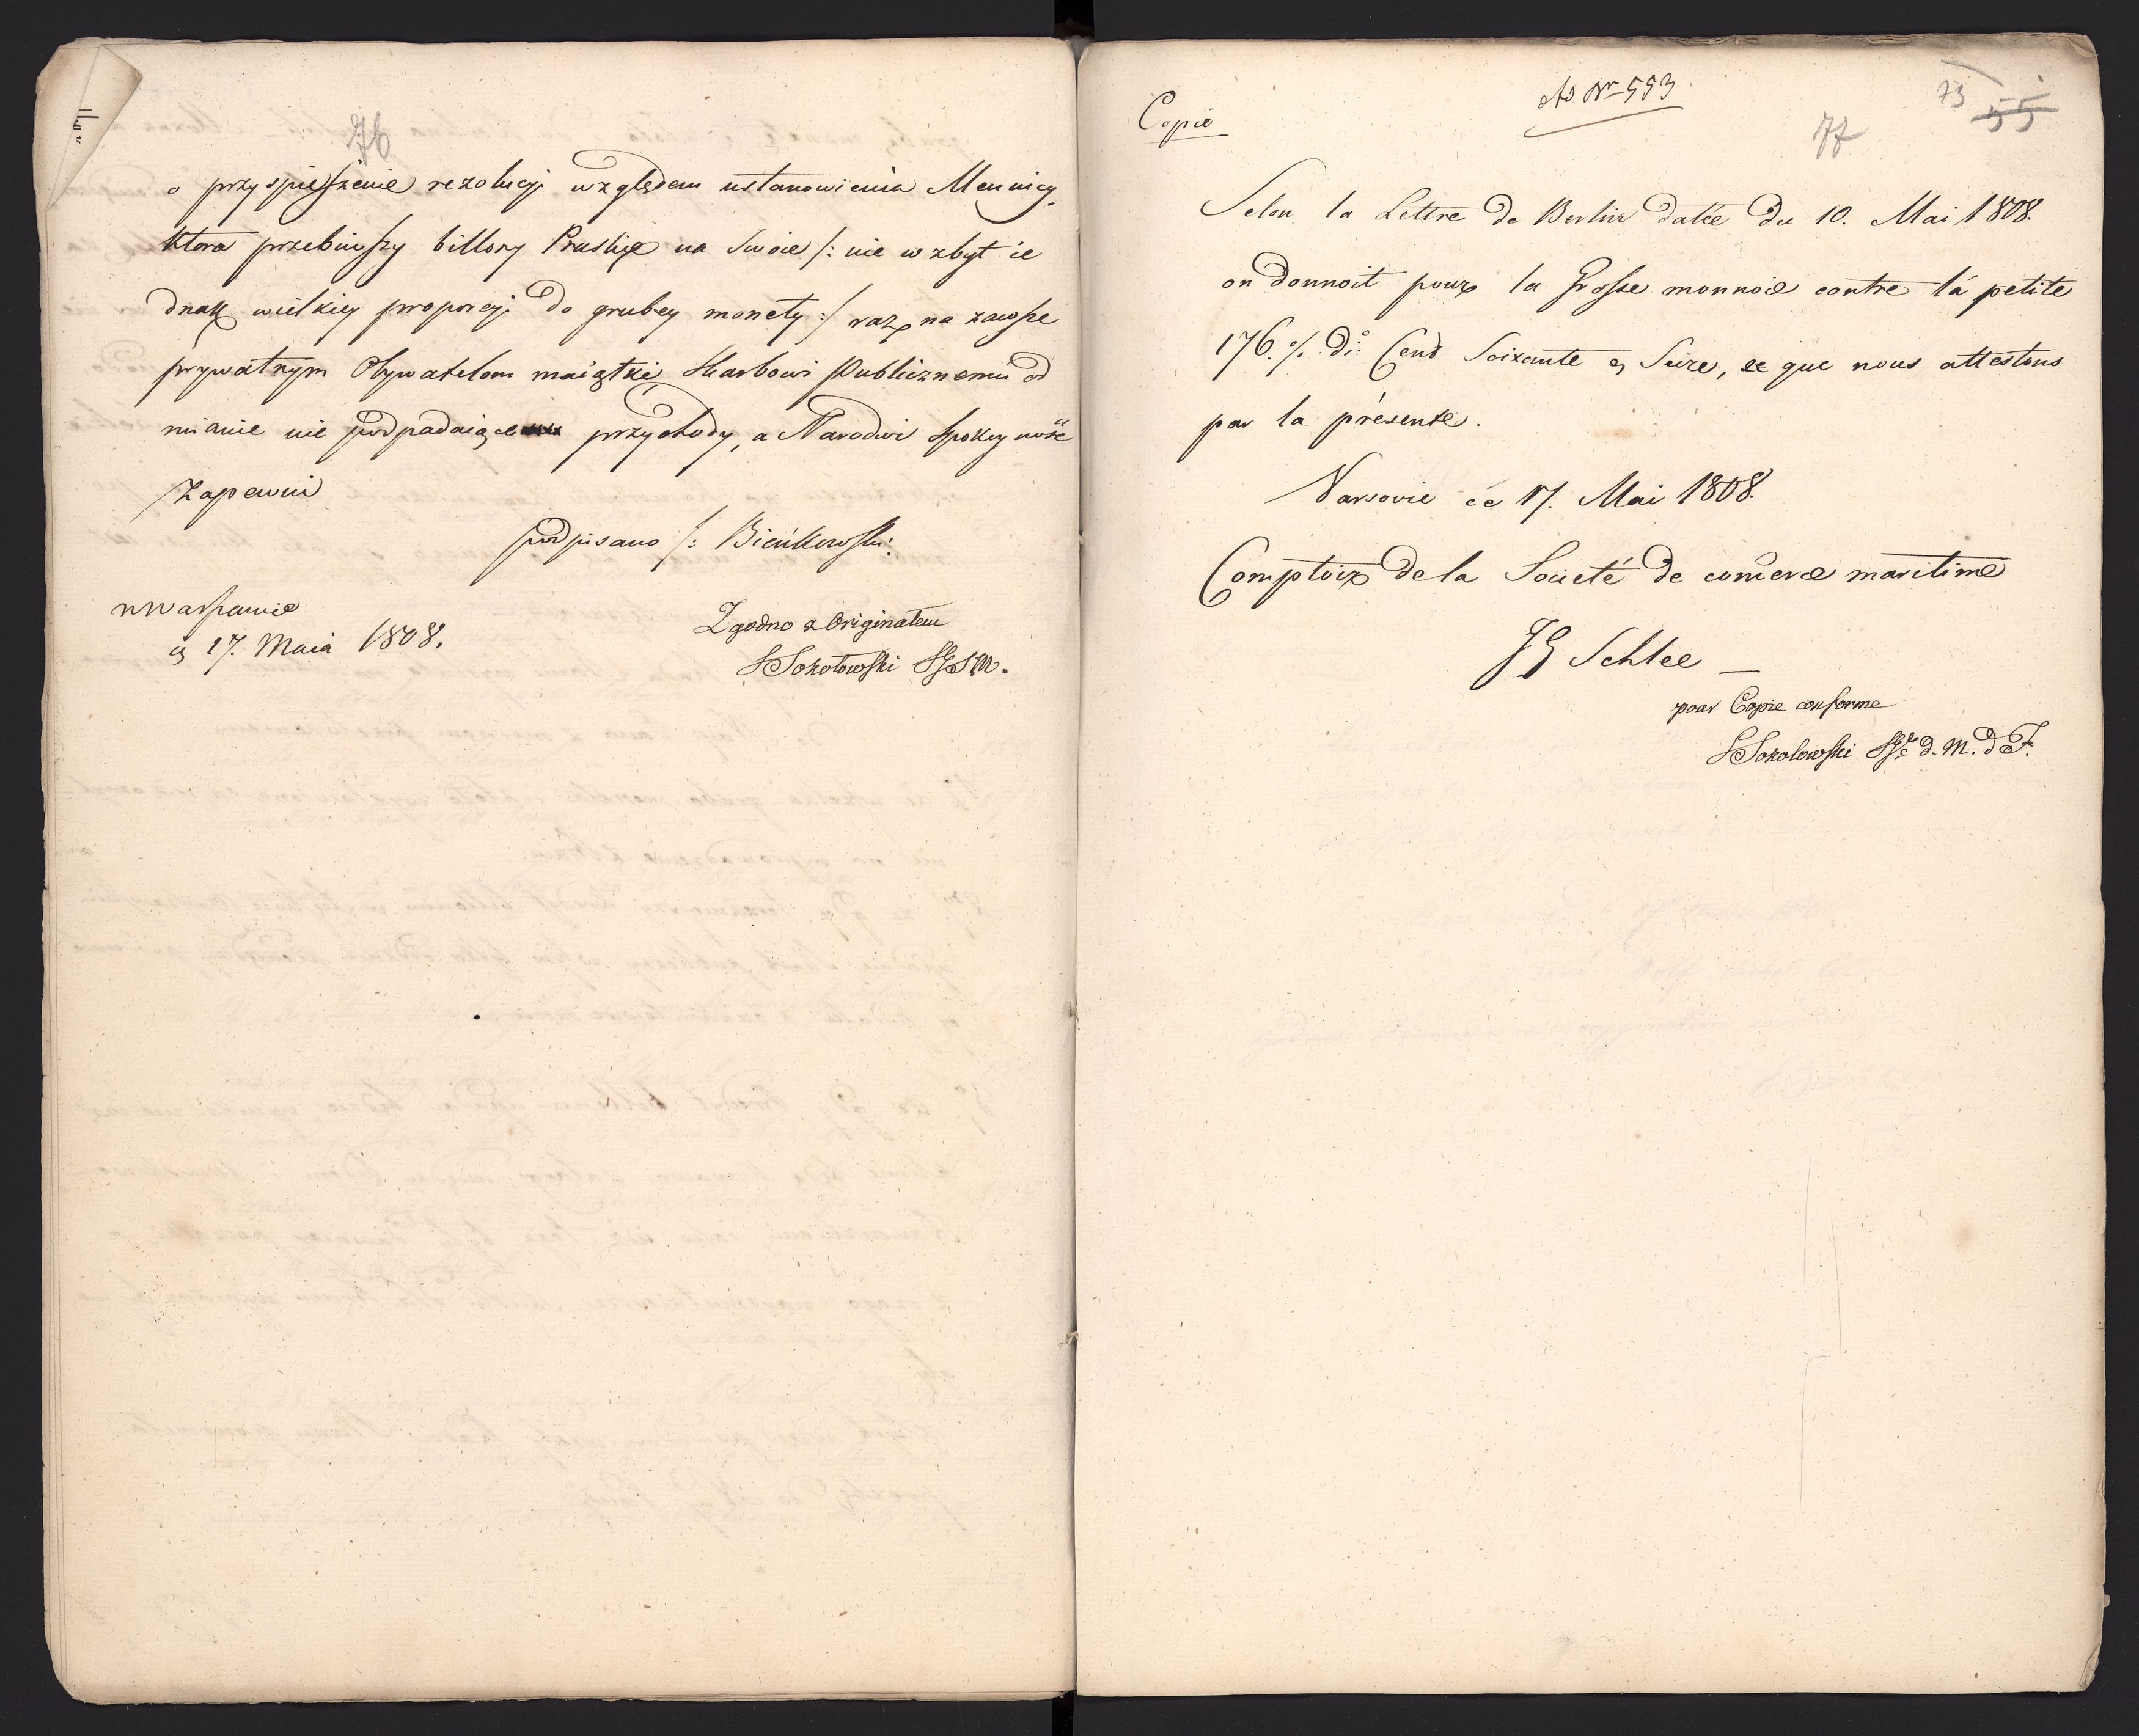 76
o przyspieszenie rezolucyi względem ustanowienia Mennicy,
ktora przebiwszy billony Pruskie na Swoie /: nie w zbyt ie
dnak wielkiey proporcyi do grubey monety :/ raz na zawsze
prywatnym Obywatelom maiątki, Skarbowi Publicznemu od
mianie nie podpadaiące przychody, a Narodowi Spokoyność
Zapewni
podpisano /: Bieńkowski:
w Warszawie
17. Maia 1808.
Zgodno z Originałem
Sokołowski
Copie
Ad Nr 553
73
55
77
Selon la Lettre de Berlin datée du 10. Mai 1808.
on donnoit pour la Grosse monnoie contre la petite
176. % di: Cent Soixante & Seize, ce que nous attestons
par la présente.
Varsovie ce 17. Mai 1808.
Comptoir de la Societé de comerce maritime
JG Schlee
pour Copie conforme
Sokolowski d. M. d F.